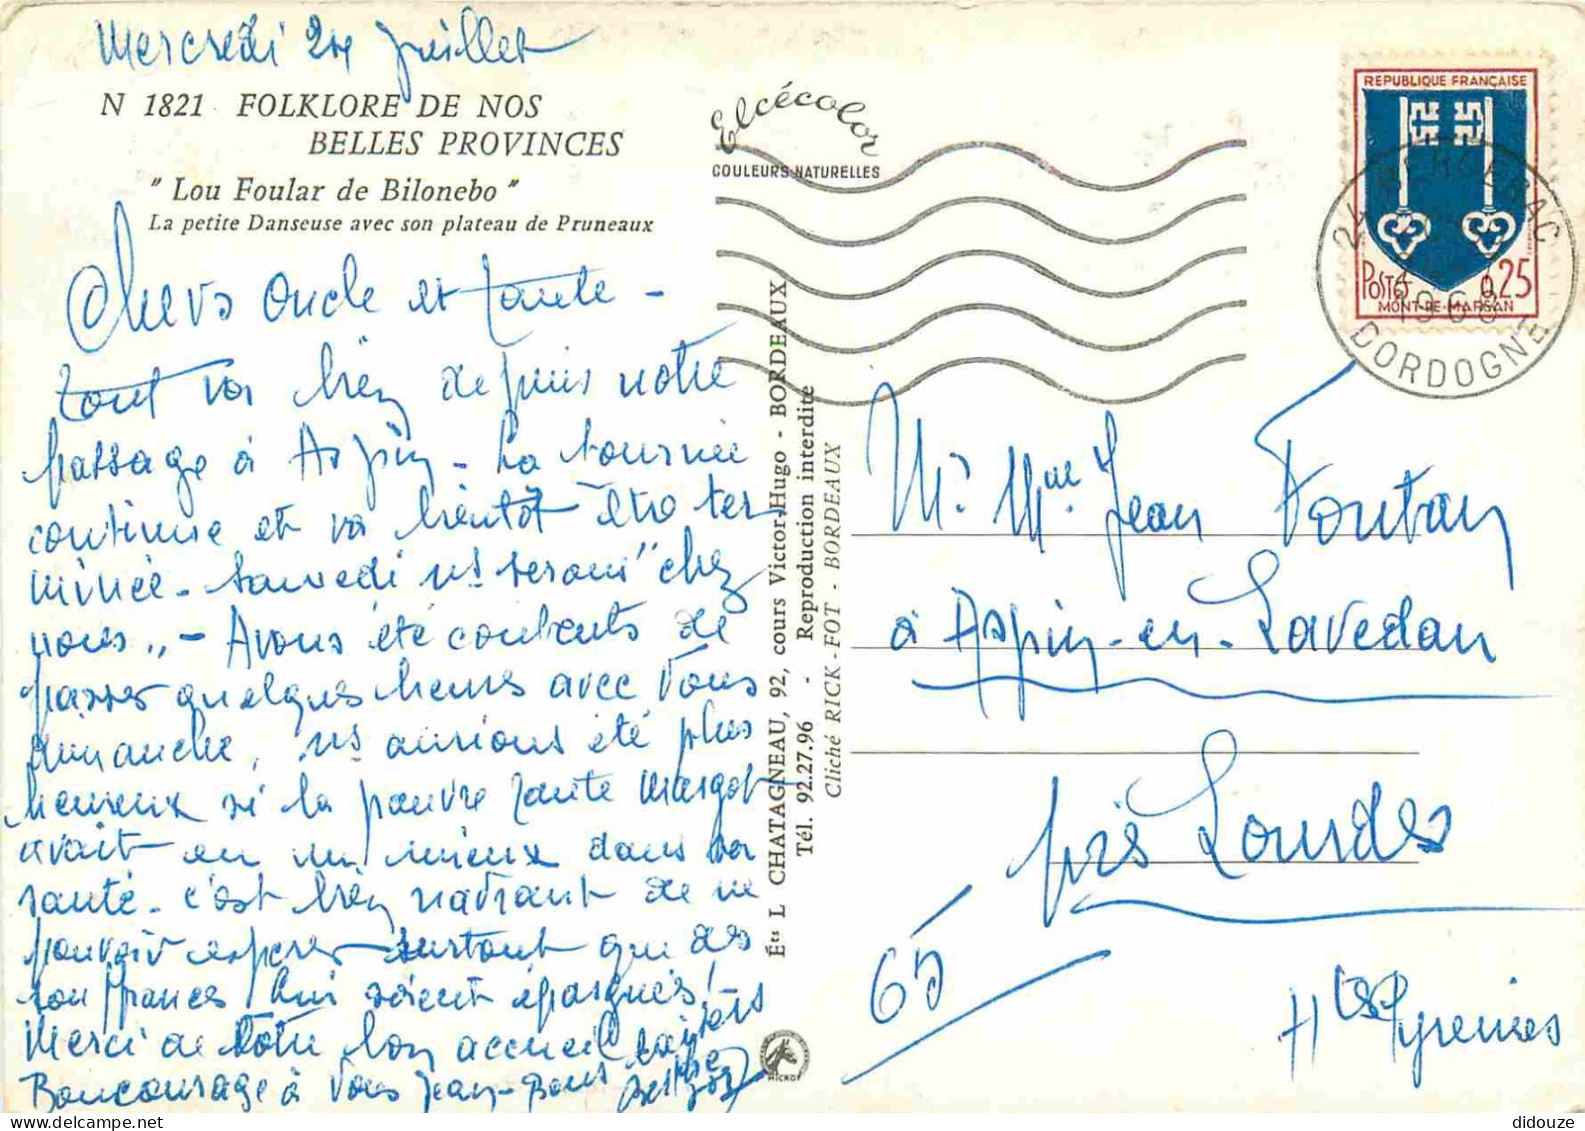 Mercredi 24 juillet
N 1821 FOLKLORE DE NOS
BELLES PROVINCES
" Lou Foular de Bilonebo "
La petite Danseuse avec son plateau de Pruneaux
Chers Oncle et Tante -
Tout va bien depuis notre
passage à Aspin - La tournée
continue et va bientôt être ter
minée - Samedi ns serons "chez
nous" - Avons été contents de
passer quelques heures avec Vous
dimanche, ns aurions été plus
heureux si la pauvre Tante Margot
avait eu un mieux dans sa
santé - c'est bien navrant de ne
pouvoir espérer surtout que des
souffrances lui soient épargnées !
Merci de Votre bon accueil
Bon courage à Vous Jean - Bons baisers
Elcécolor
COULEURS NATURELLES
Éts L CHATAGNEAU, 92, cours Victor-Hugo - BORDEAUX
Tél. 92.27.96 - Reproduction interdite
Cliché RICK-FOT - BORDEAUX
REPUBLIQUE FRANÇAISE
POSTES 0,25
MONT-DE-MARSAN
24 BERGERAC
1968
DORDOGNE
Mr Mme Jean Fontan
à Aspin-en-Lavedan
près Lourdes
65
Htes Pyrénées
didouze